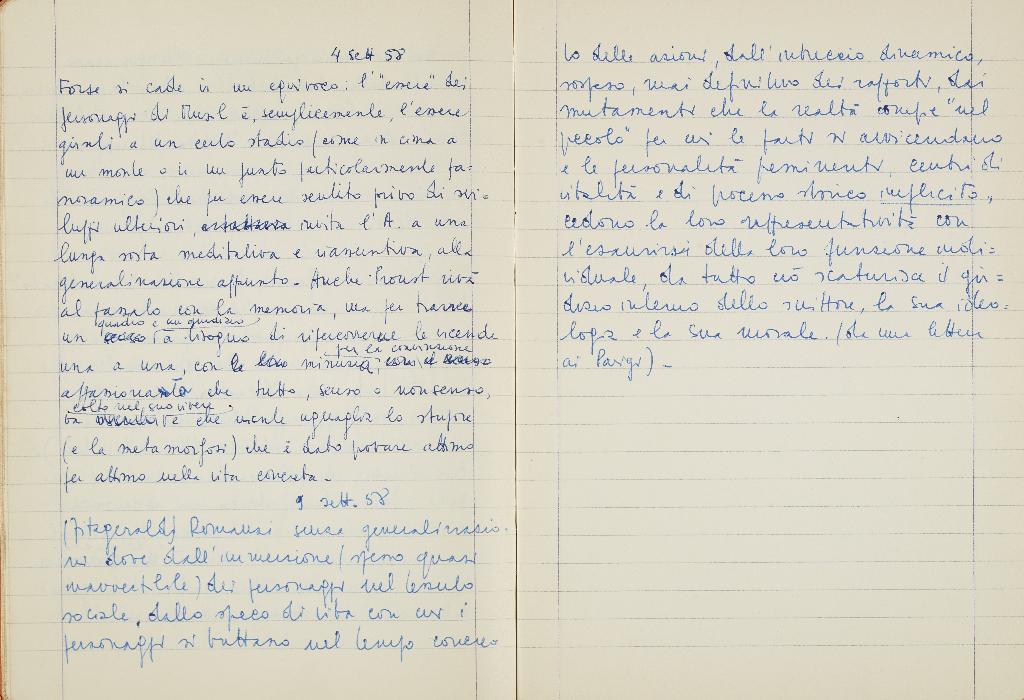 4 sett 58
Forse si cade in un equivoco: l'"essere" dei
personaggi di Musil è, semplicemente, l'essere
giunti a un certo stadio (come in cima a
un monte o in un punto particolarmente pa-
noramico) che per essere sentito privo di svi-
luppi ulteriori, invita l'A. a una
lunga sosta meditativa e riassuntiva, alla
generalizzazione appunto. Anche Proust
al passato con la memoria, ma per trarre
quadro e un giudizio
un bisogno di ripercorrerne le vicende
per la convinzione
una a una, con minuzia,
appassionata che tutto, senso o nonsenso,
colto nel suo vivere
va che niente uguaglia lo stupore
(e la metamorfosi) che è dato provare attimo
per attimo nella vita concreta.
9 sett. 58
(Fitzgerald) Romanzi senza generalizzazio-
ni dove dall'immersione (spesso quasi
inavvertibile) dei personaggi nel tessuto
sociale, dallo spreco di vita con cui i
personaggi si buttano nel tempo concreo
lo delle azioni, dall'intreccio dinamico,
sospeso, mai definitivo dei rapporti, dai
mutamenti che la realtà compie "nel
piccolo" per cui le parti si avvicendano
e le personalità preminenti, centri di
vitalità e di processo storico implicito,
cedono la loro rappresentatività con
l'esaurirsi della loro funzione indi-
viduale, da tutto ciò scaturisce il giu-
dizio interno dello scrittore, la sua ideo-
logia e la sua morale. (da una lettera
ai Parigi) -